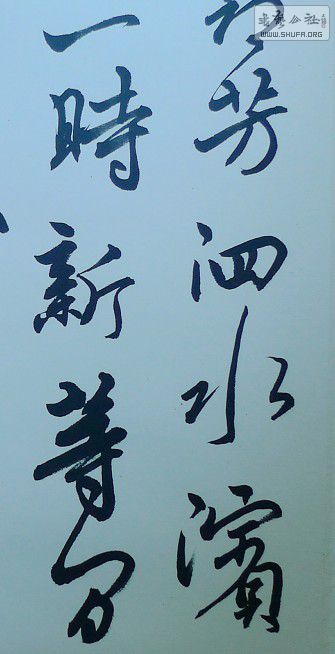 芳泗水濱
一時新等
書法公社
WWW.SHUFA.ORG